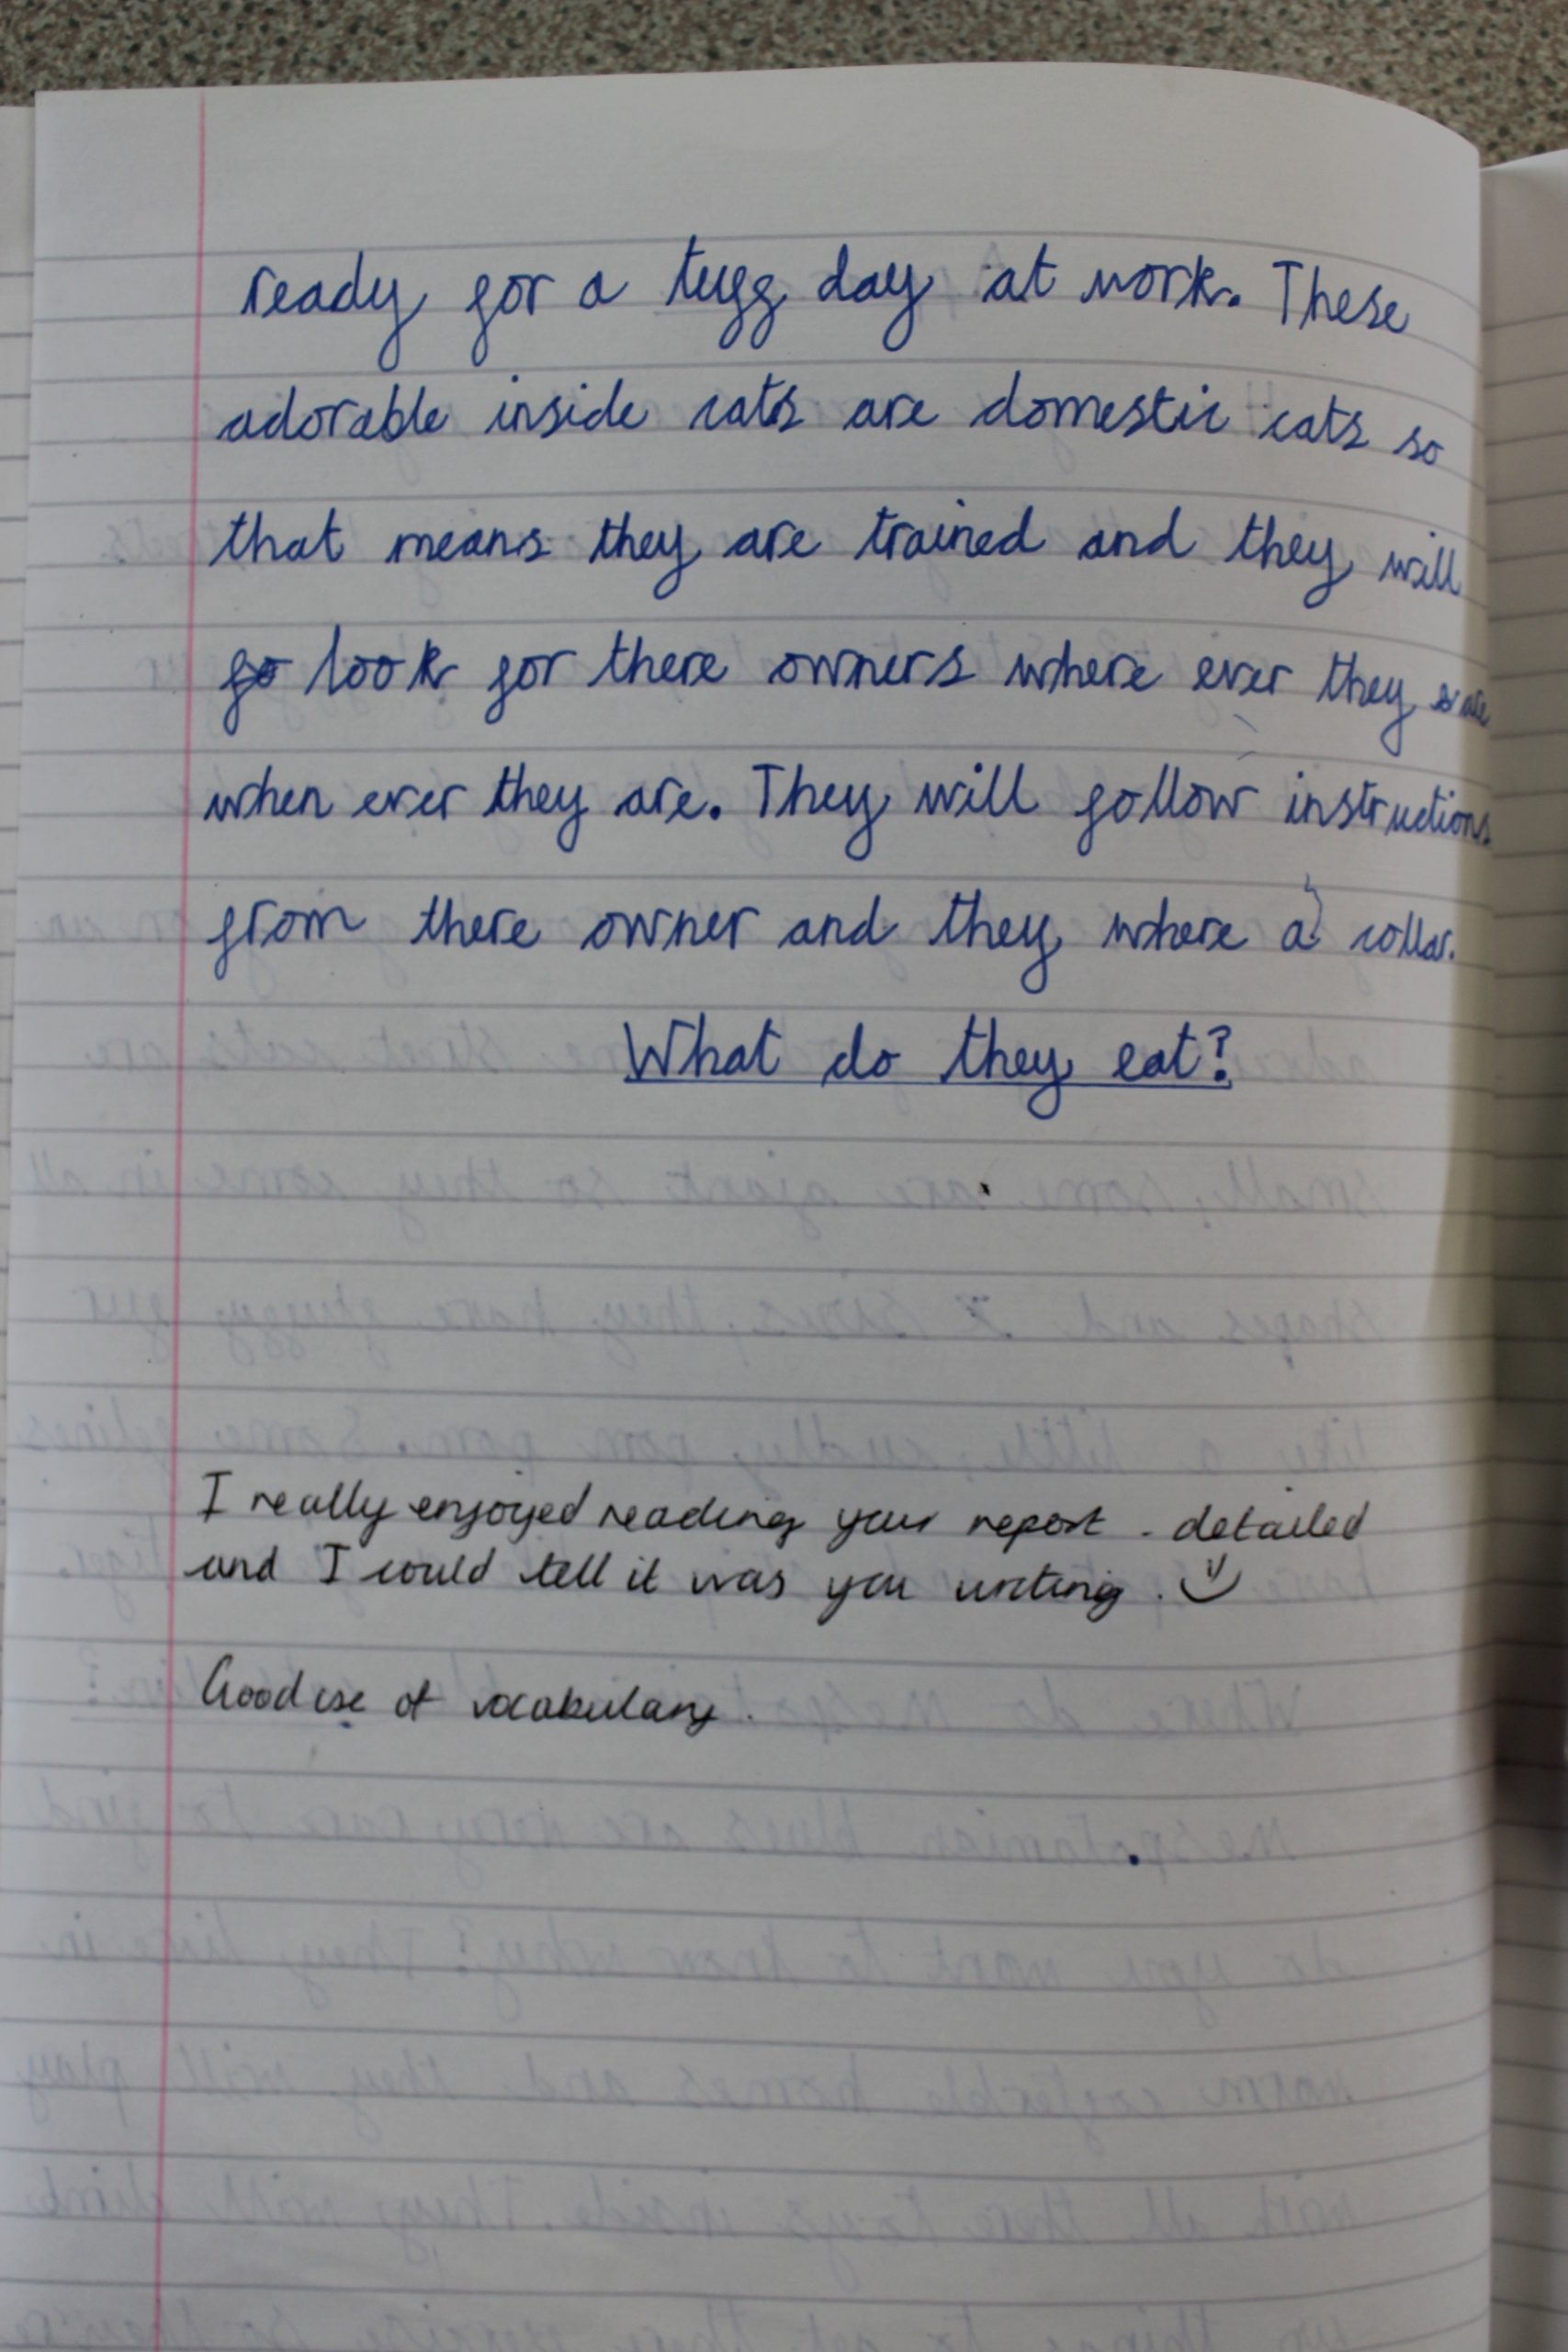 ready for a tuff day at work. These
adorable inside cats are domestic cats so
that means they are trained and they will
go look for there owners where ever they are
when ever they are. They will follow instructions
from there owner and they where a collar.
What do they eat?
I really enjoyed reading your report - detailed
and I could tell it was you writing. :)
Good use of vocabulary.